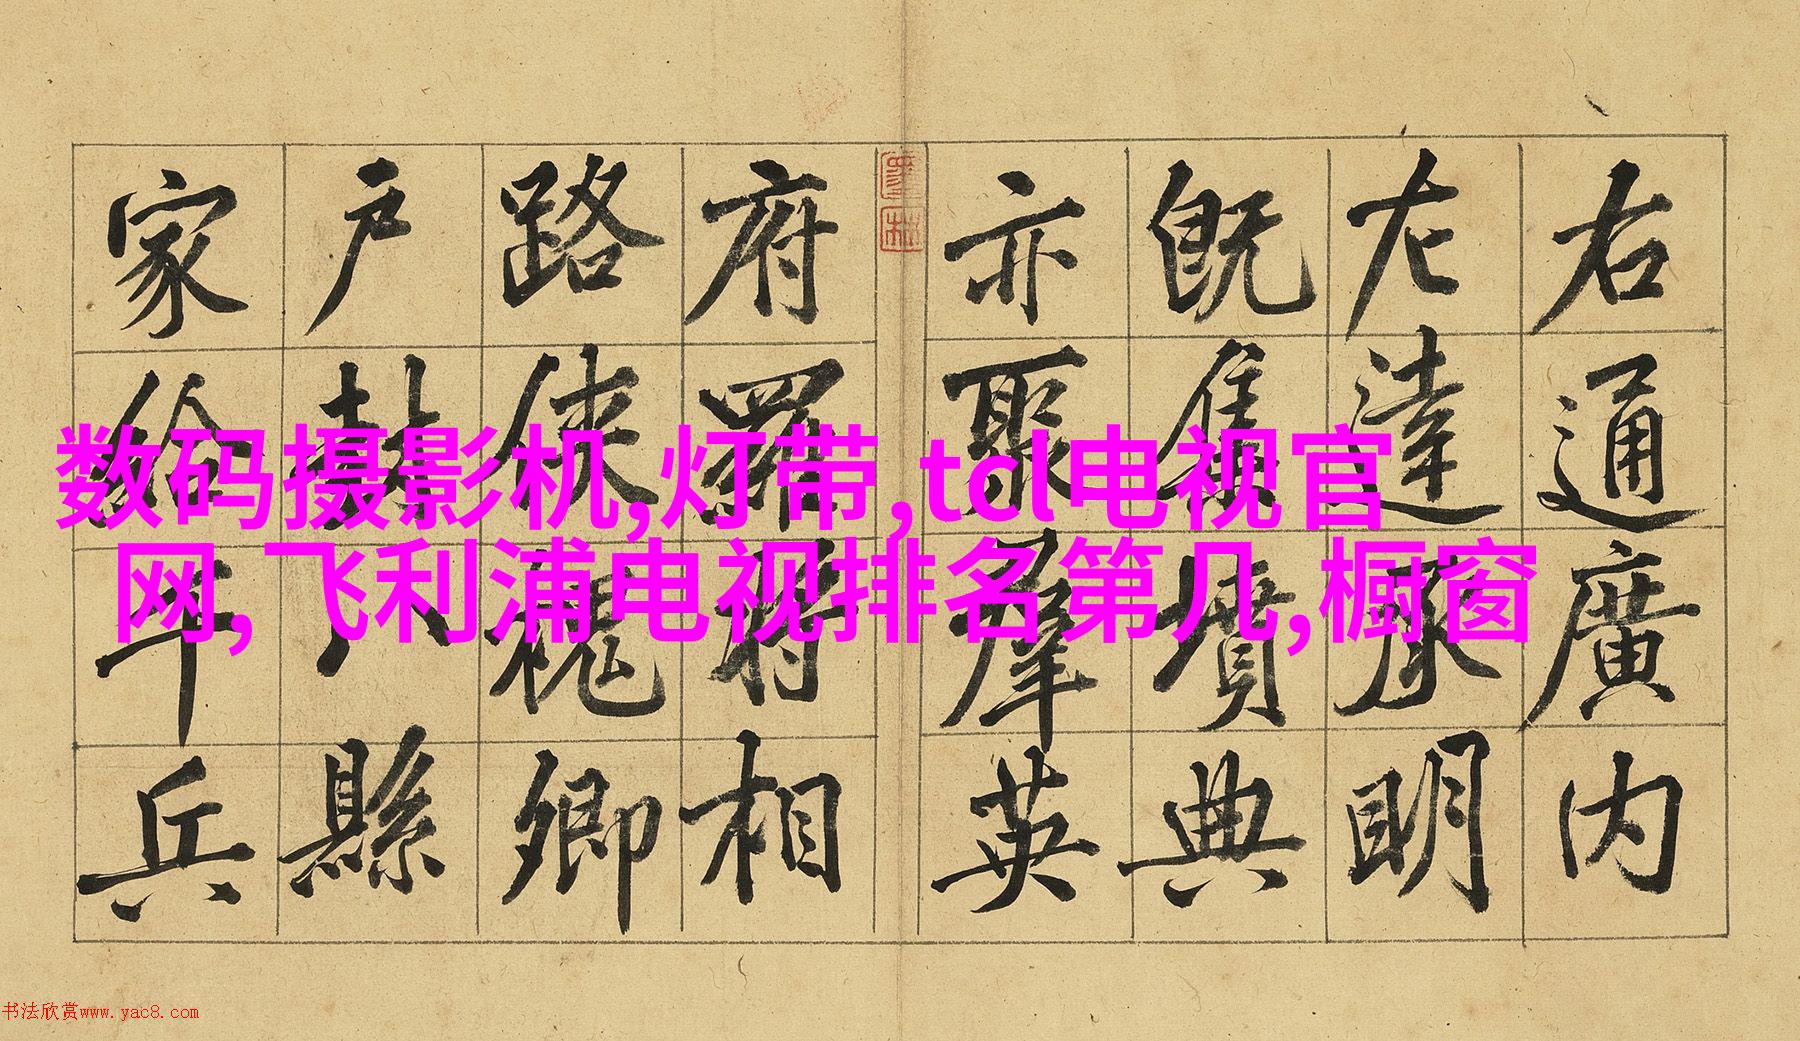 右通廣内
左達承明
既集墳典
亦聚羣英
府羅将相
路俠槐卿
户封八縣
家給千兵
数码摄影机,灯带,tcl电视官
网,飞利浦电视排名第几,橱窗
书法欣赏www.yac8.com